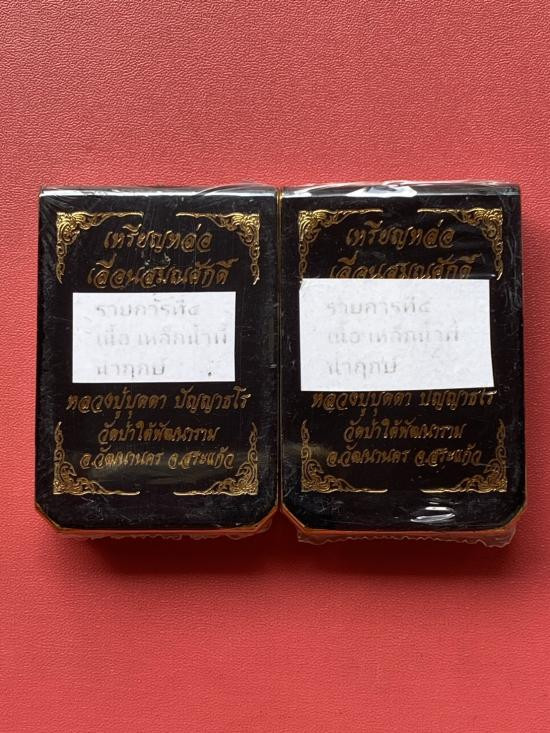 เหรียญหล่อ
เลื่อนสมณศักดิ์
รายการที่๔
เนื้อ เหล็กน้ำพี้
นำฤกษ์
หลวงปู่บุดดา ปัญญาธโร
วัดป่าใต้พัฒนาราม
อ.วัฒนานคร จ.สระแก้ว
เหรียญหล่อ
เลื่อนสมณศักดิ์
รายการที่๔
เนื้อ เหล็กน้ำพี้
นำฤกษ์
หลวงปู่บุดดา ปัญญาธโร
วัดป่าใต้พัฒนาราม
อ.วัฒนานคร จ.สระแก้ว